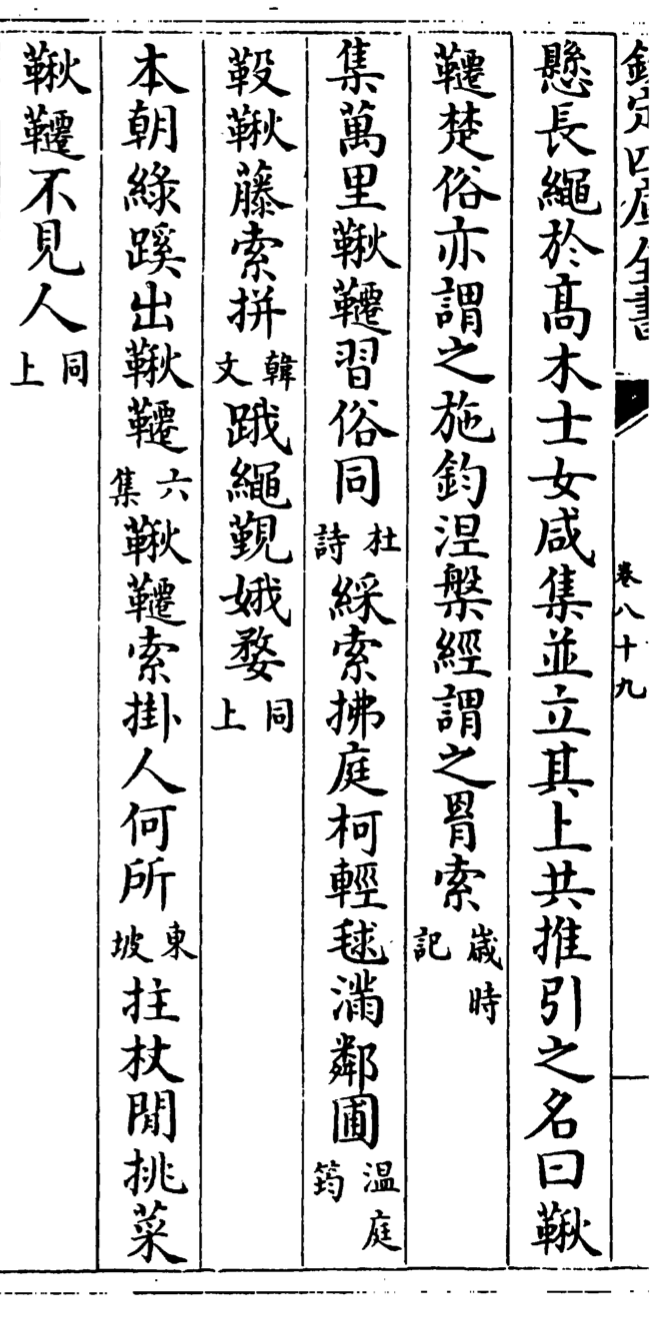 欽定四庫全書
卷八十九
懸長繩於髙木士女咸集並立其上共推引之名曰鞦
韆楚俗亦謂之施鈎涅槃經謂之罥索歳時記
集萬里鞦韆習俗同杜詩綵索拂庭柯輕毬滿鄰圃温庭筠
鞍鞦藤索拼韓文踙繩覲娥婺同上
本朝緑蹊出鞦韆六集鞦韆索掛人何所東坡拄杖閒挑菜
鞦韆不見人同上